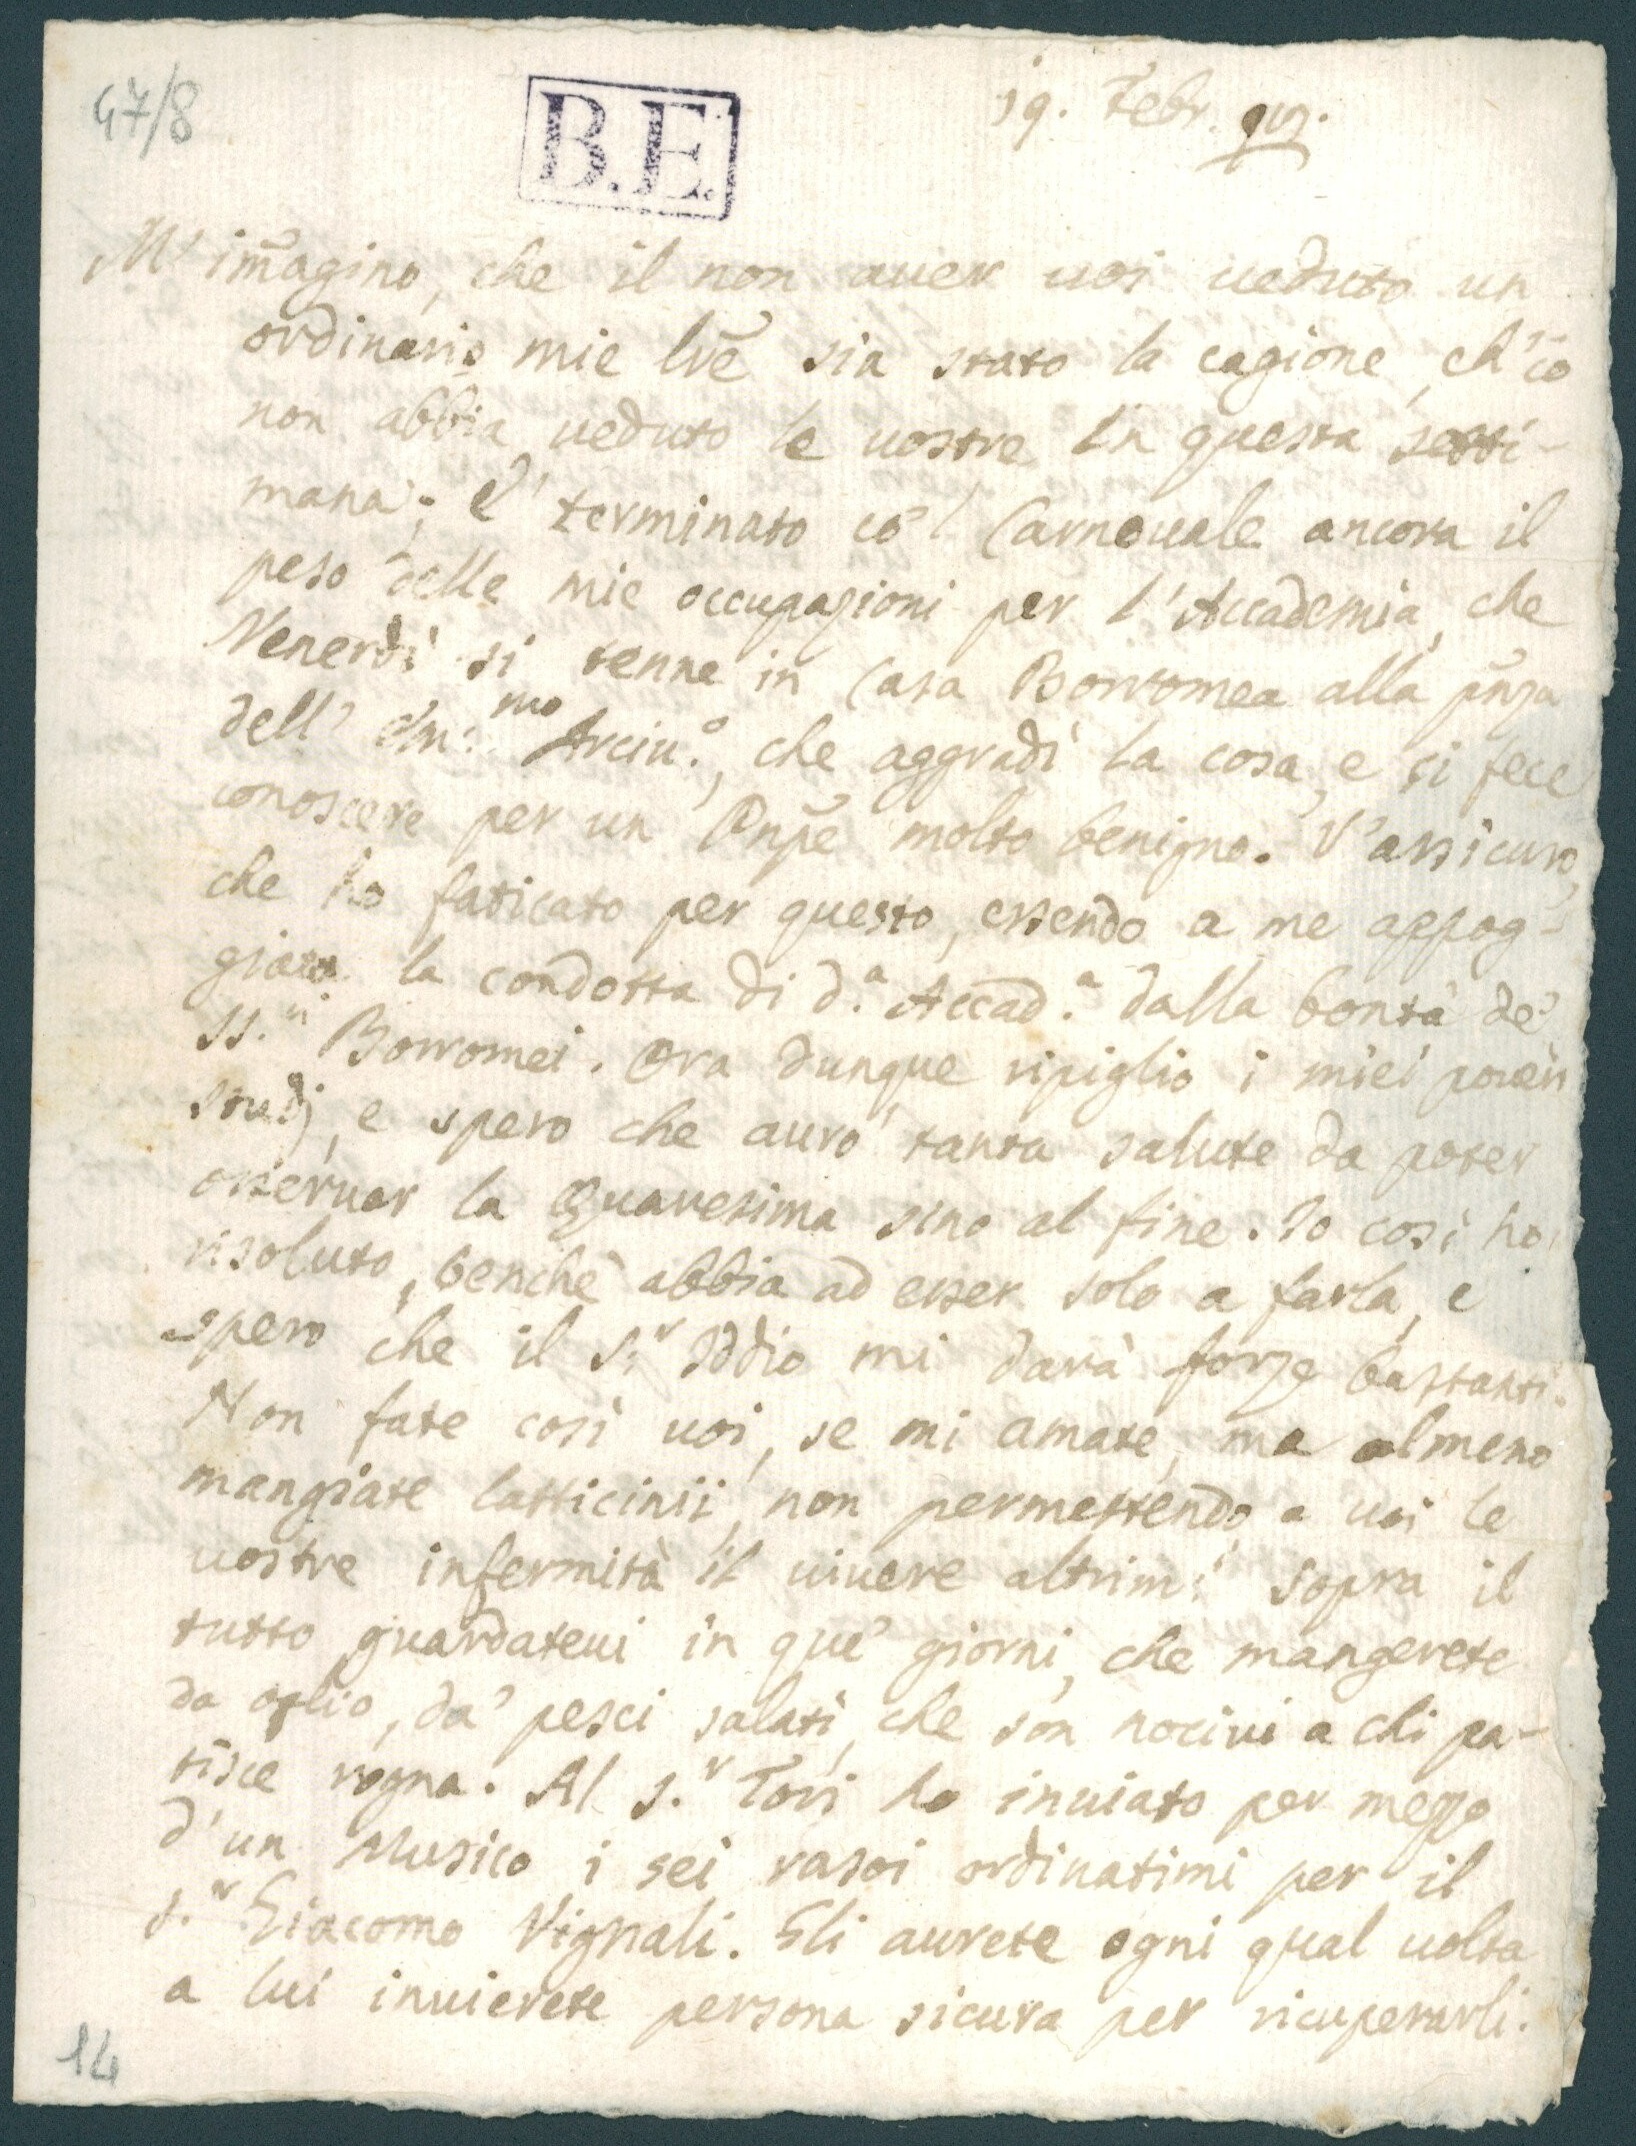 47/8
B.E.
19. Febr.
M'im̃agino, che il non auer uoi ueduto un
ordinario mie lr̃e sia stato la cagione, ch'io
non abbia ueduto le uostre in questa setti-
mana; E' terminato co'l Carneuale ancora il
peso delle mie occupazioni per l'Accademia, che
Venerdì si tenne in Casa Borromea alla pñza
dell' Em:mo Arciu.o, che aggradì la cosa, e si fece
conoscere per un Pnpẽ molto benigno. V'assicuro,
che ho faticato per questo, essendo a me appog-
giata la condotta di d.a Accad.a dalla bontà de'
SS.ri Borromei. Ora dunque ripiglio i miei poueri
studj, e spero che aurò tanta salute da poter
osseruar la Quaresima sino al fine. Io così ho
risoluto, benchè abbia ad esser solo a farla, e
spero che il S.r Iddio mi darà forze bastanti.
Non fate così uoi, se mi amate, ma almeno
mangiate latticinii, non permettendo a uoi le
uostre infermità il uiuere altrim.i Sopra il
tutto guardateui in que' giorni, che mangerete
da oglio, da' pesci salati, che son nociui a chi pa-
tisce rogna. Al S.r Tori ho inuiato per mezzo
d'un Musico i sei rasoi ordinatimi per il
S.r Giacomo Vignali. Gli aurete ogni qual uolta
a lui inuierete persona sicura per ricuperarli.
14